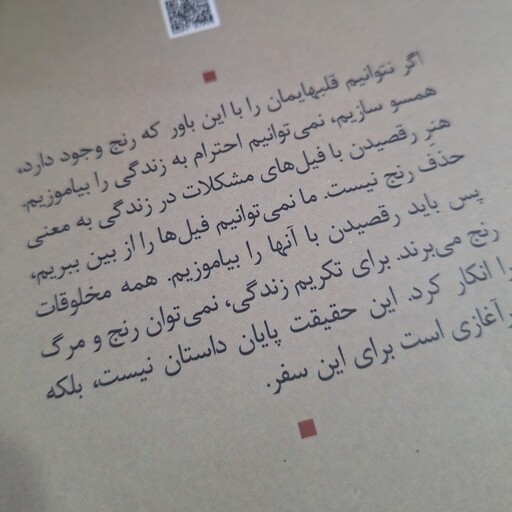 اگر نتوانیم قلبهایمان را با این باور که رنج وجود دارد،
همسو سازیم، نمی‌توانیم احترام به زندگی را بیاموزیم.
هنرِ رقصیدن با فیل‌های مشکلات در زندگی به معنی
حذف رنج نیست. ما نمی‌توانیم فیل‌ها را از بین ببریم،
پس باید رقصیدن با آنها را بیاموزیم. همه مخلوقات
رنج می‌برند. برای تکریم زندگی، نمی‌توان رنج و مرگ
را انکار کرد. این حقیقت پایان داستان نیست، بلکه
آغازی است برای این سفر.